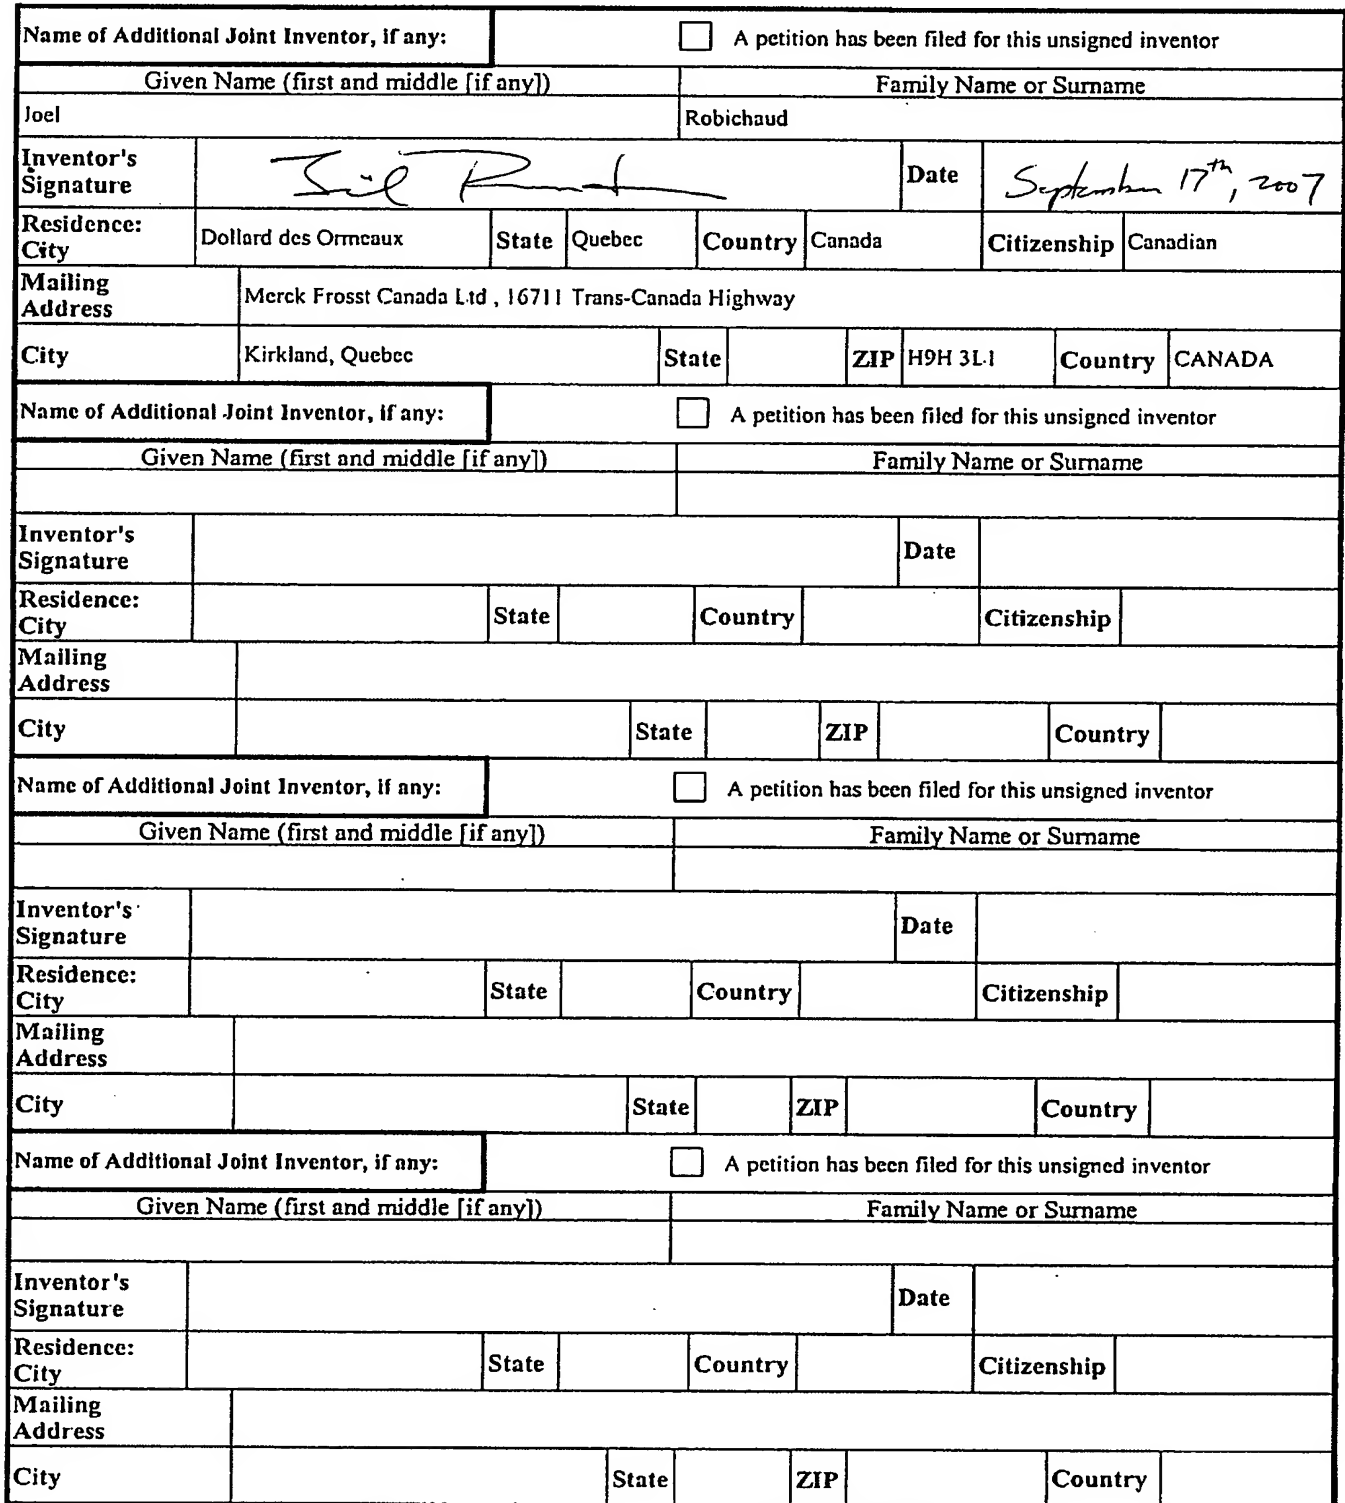 Name of Additional Joint Inventor, if any: A petition has been filed for this unsigned inventor
Given Name (first and middle [if any]) Family Name or Surname
Joel Robichaud
Inventor's Signature Date September 17th, 2007
Residence: City Dollard des Ormeaux State Quebec Country Canada Citizenship Canadian
Mailing Address Merck Frosst Canada Ltd , 16711 Trans-Canada Highway
City Kirkland, Quebec State ZIP H9H 3L1 Country CANADA
Name of Additional Joint Inventor, if any: A petition has been filed for this unsigned inventor
Given Name (first and middle [if any]) Family Name or Surname
Inventor's Signature Date
Residence: City State Country Citizenship
Mailing Address
City State ZIP Country
Name of Additional Joint Inventor, if any: A petition has been filed for this unsigned inventor
Given Name (first and middle [if any]) Family Name or Surname
Inventor's Signature Date
Residence: City State Country Citizenship
Mailing Address
City State ZIP Country
Name of Additional Joint Inventor, if any: A petition has been filed for this unsigned inventor
Given Name (first and middle [if any]) Family Name or Surname
Inventor's Signature Date
Residence: City State Country Citizenship
Mailing Address
City State ZIP Country